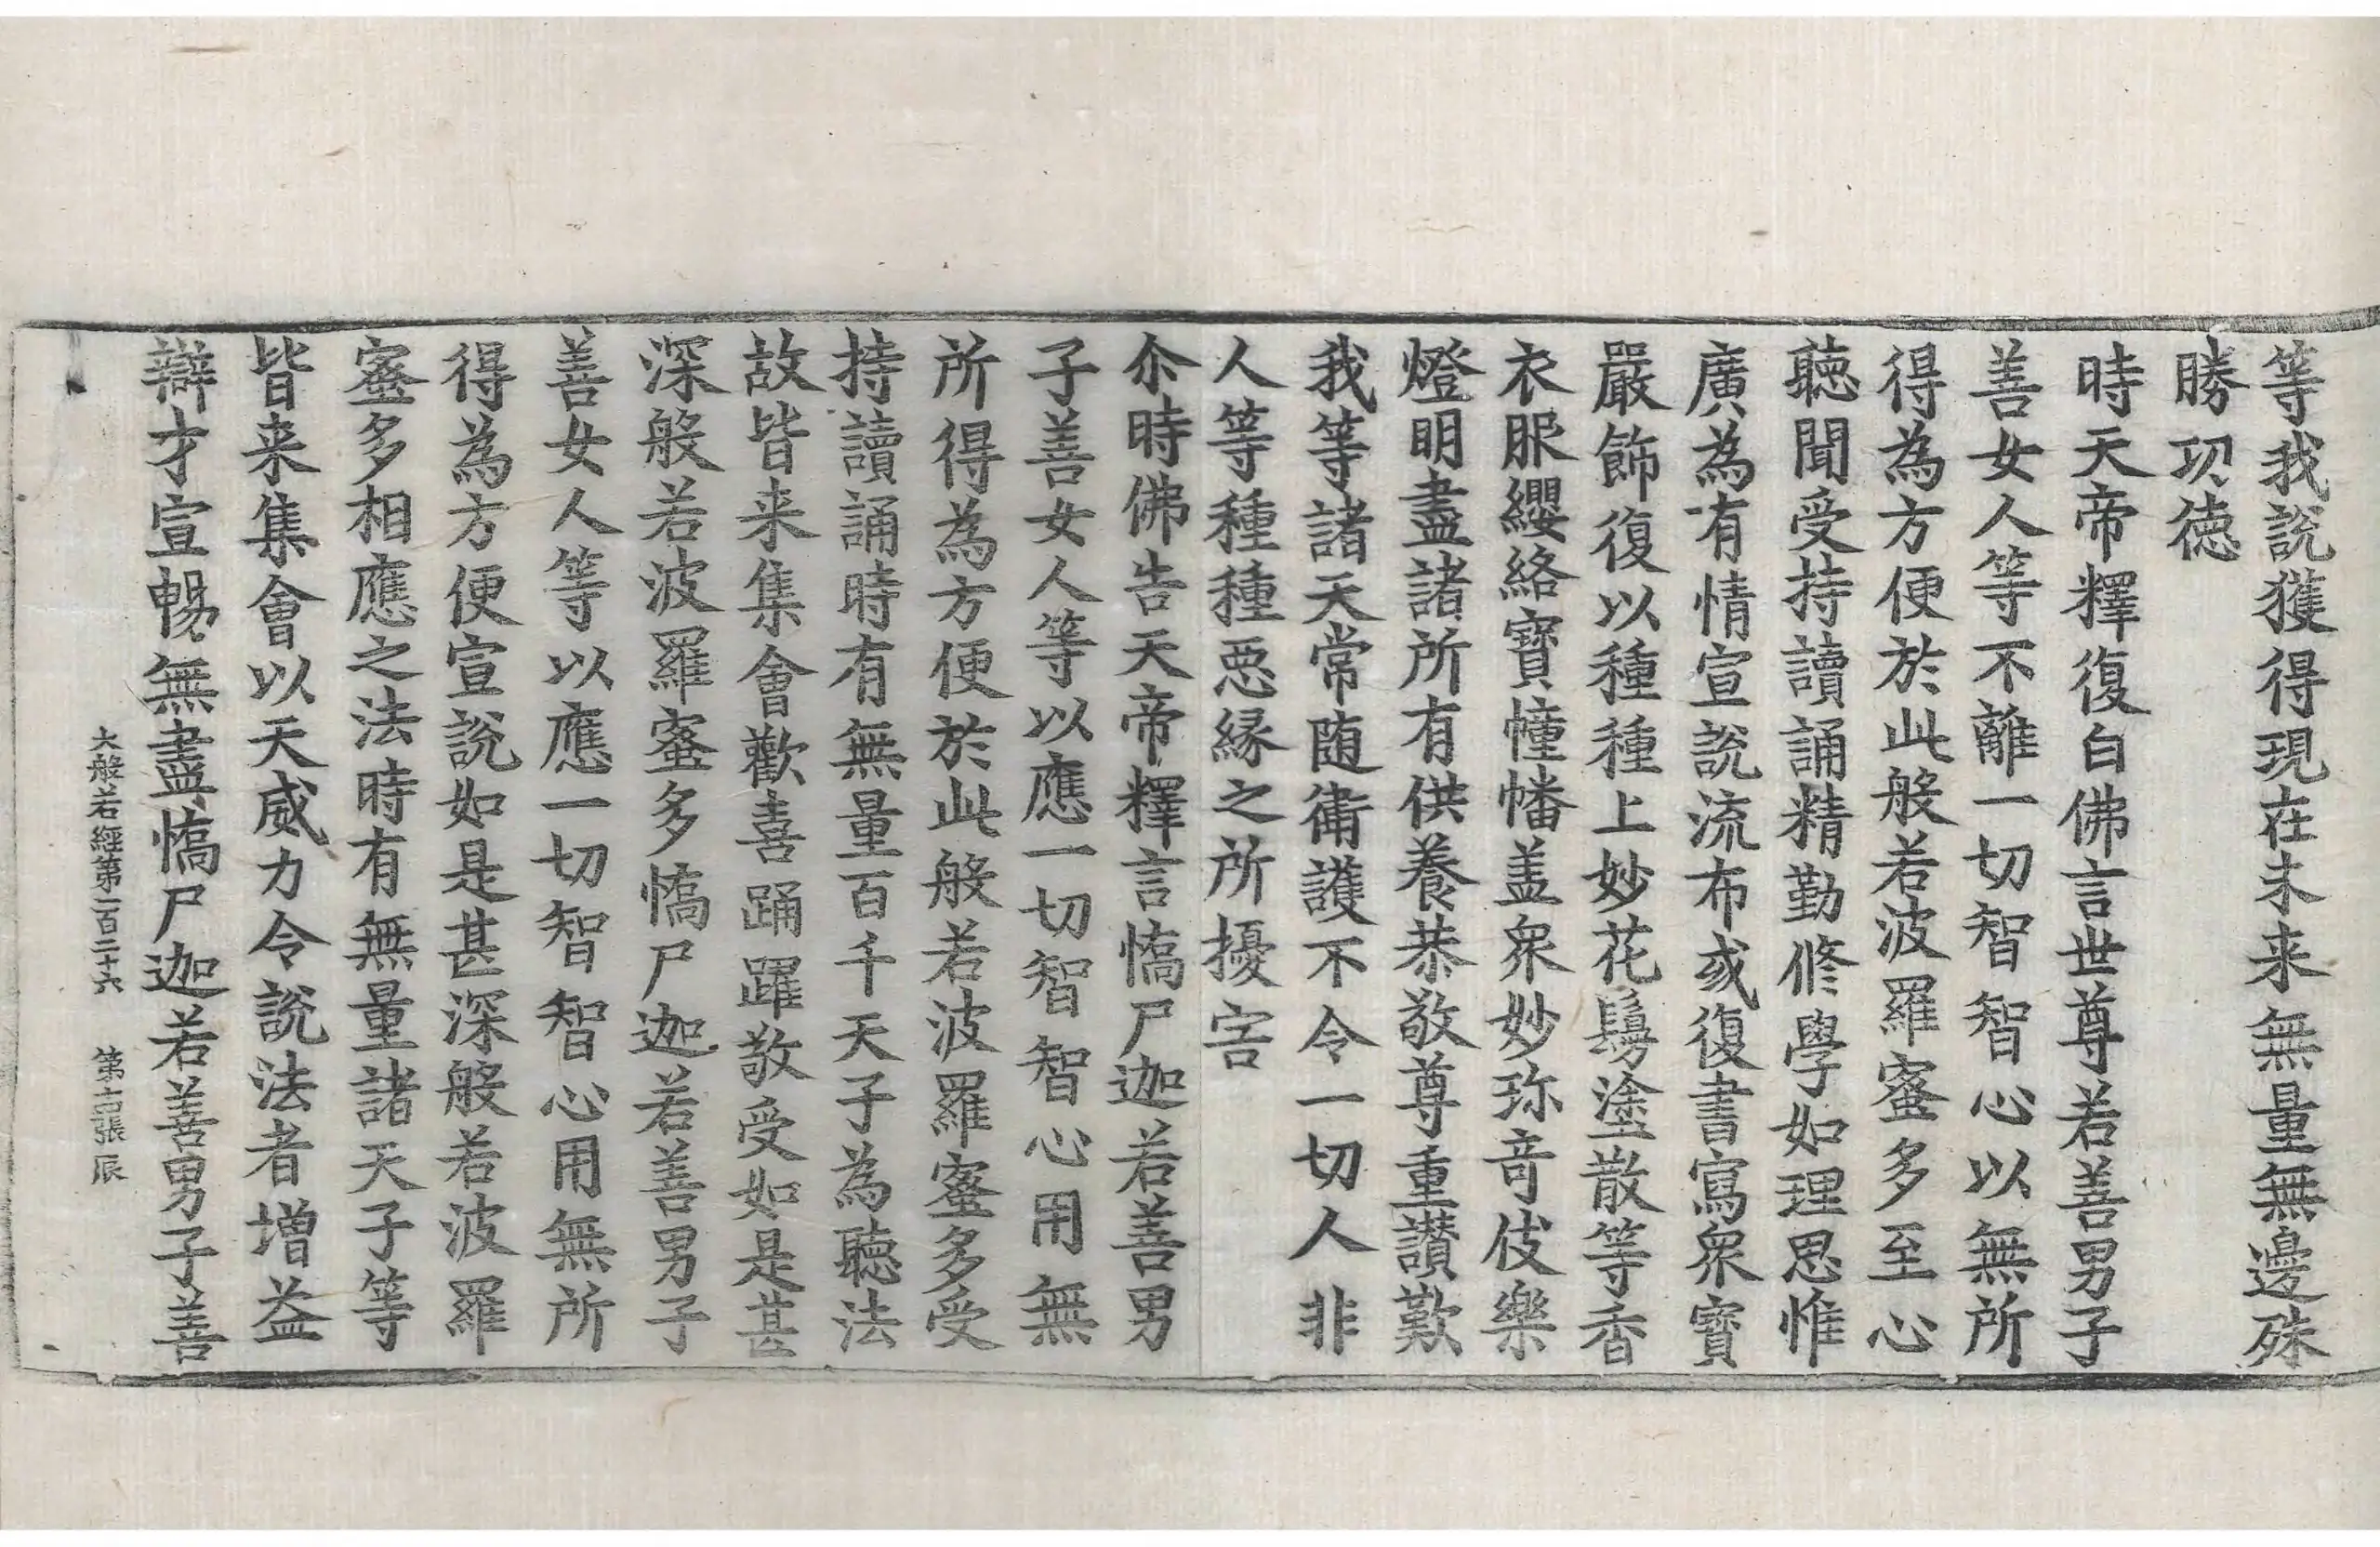 等我說獲得現在未来無量無邊殊
勝功德
時天帝釋復白佛言世尊若善男子
善女人等不離一切智智心以無所
得為方便於此般若波羅蜜多至心
聽聞受持讀誦精勤修學如理思惟
廣為有情宣說流布或復書寫衆寶
嚴飾復以種種上妙花鬘塗散等香
衣服纓絡寶幢幡盖衆妙珎奇伎樂
燈明盡諸所有供養恭敬尊重讃歎
我等諸天常随衛護不令一切人非
人等種種惡緣之所擾害
尒時佛告天帝釋言憍尸迦若善男
子善女人等以應一切智智心用無
所得為方便於此般若波羅蜜多受
持讀誦時有無量百千天子為聽法
故皆来集會歡喜踊躍敬受如是甚
深般若波羅蜜多憍尸迦若善男子
善女人等以應一切智智心用無所
得為方便宣說如是甚深般若波羅
蜜多相應之法時有無量諸天子等
皆来集會以天威力令說法者增益
辯才宣暢無盡憍尸迦若善男子善
大般若經第一百二十六 第十三張 辰